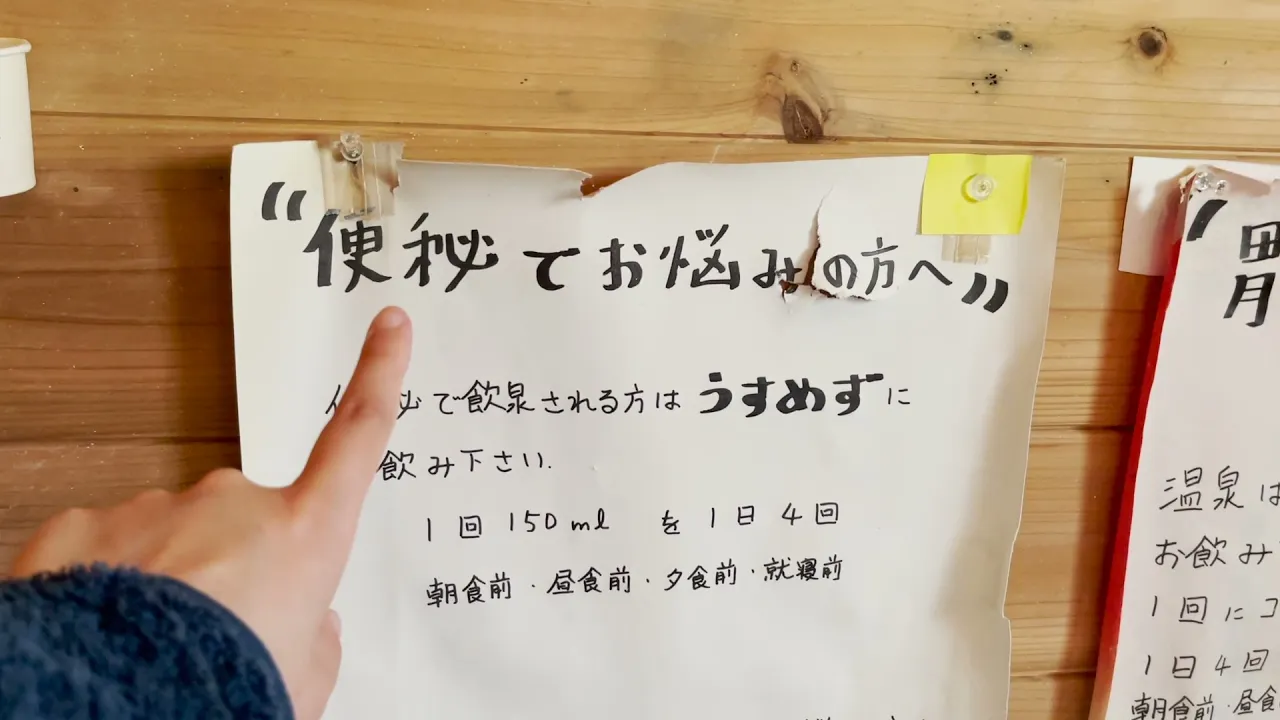 “便秘でお悩みの方へ”
便秘で飲泉される方はうすめずに
飲み下さい.
1回 150ml を1日4回
朝食前・昼食前・夕食前・就寝前
胃
温泉は
お飲み
1回にコ
1日4回
朝食前・昼食